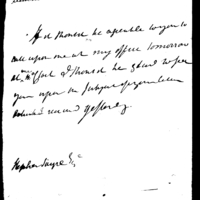 If it should be agreeable to you to
call upon me at my office tomorrow
at I should be glad to see
you upon the subject of your letter
which I received yesterday
Stephen Sayre Esqr